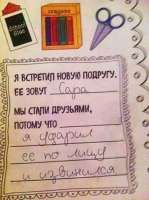 School Glue
crayons
Я ВСТРЕТИЛ НОВУЮ ПОДРУГУ.
ЕЕ ЗОВУТ Сара
МЫ СТАЛИ ДРУЗЬЯМИ,
ПОТОМУ ЧТО
я ударил
ее по лицу
и извинился